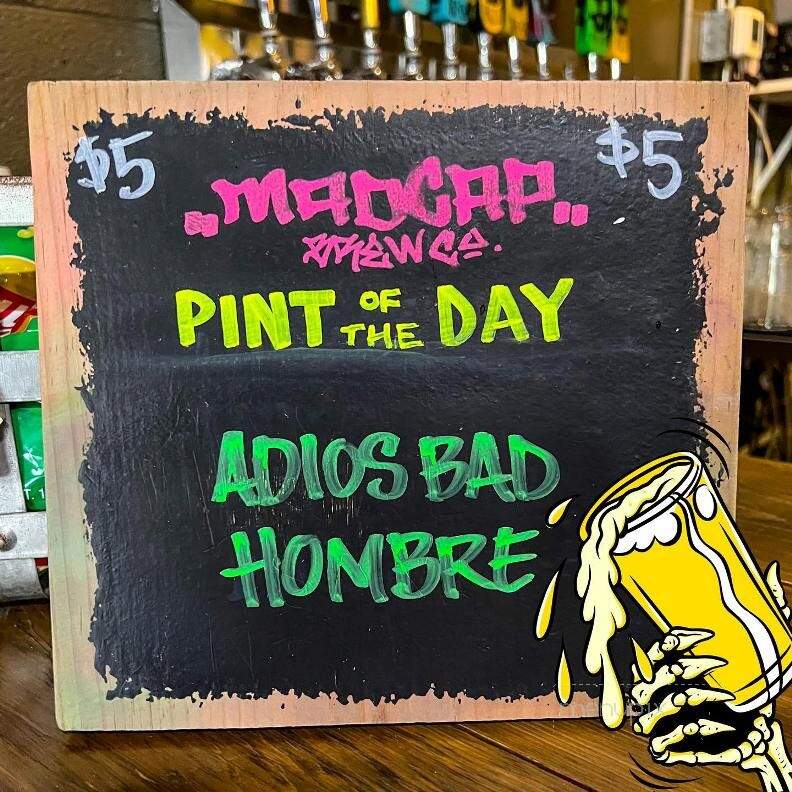 $5 $5
MADCAP
BREW CO.
PINT OF THE DAY
ADIOS BAD
HOMBRE